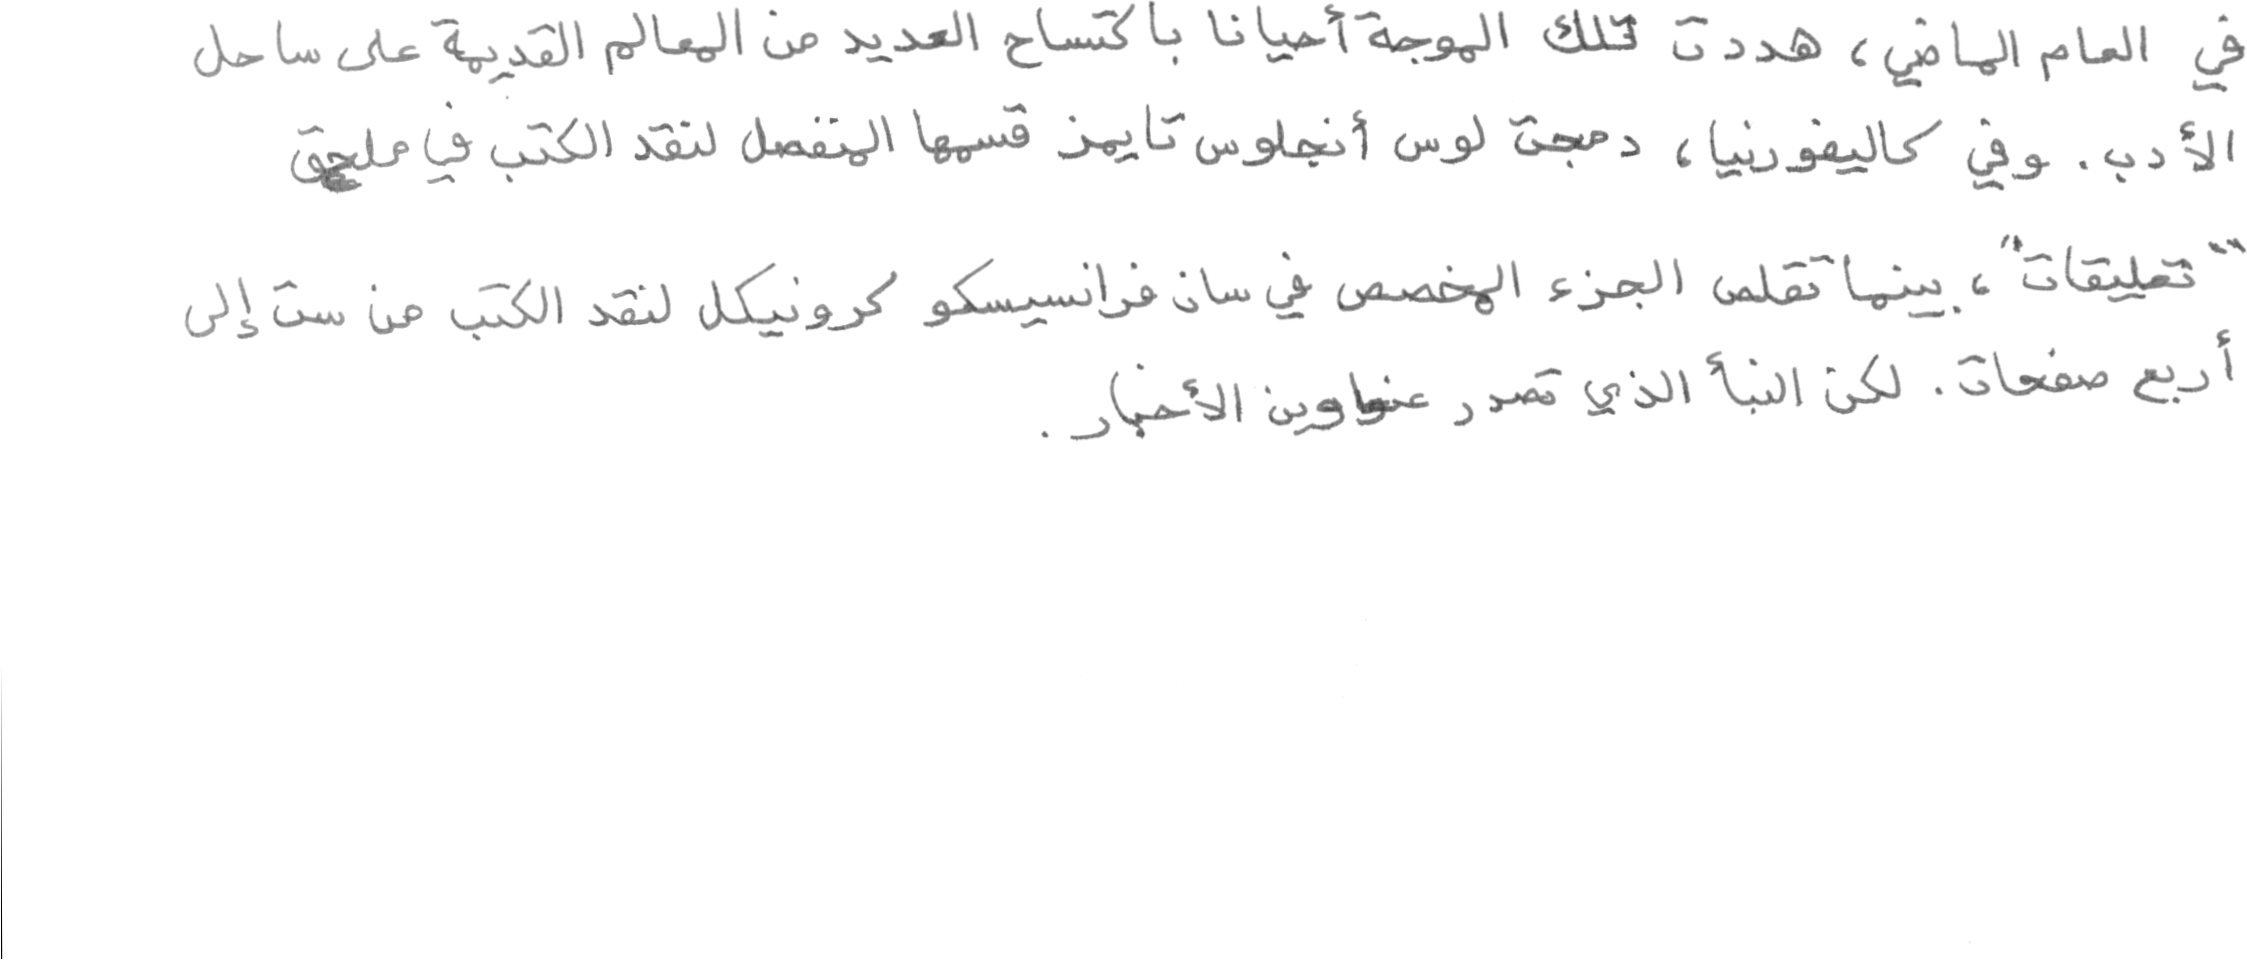 في العام الماضي، هددت تلك الموجة أحيانا باكتساح العديد من المعالم القديمة على ساحل
الأدب. وفي كاليفورنيا، دمجت لوس أنجلوس تايمز قسمها المنفصل لنقد الكتب في ملحق
"تعليقات"، بينما تقلص الجزء المخصص في سان فرانسيسكو كرونيكل لنقد الكتب من ست إلى
أربع صفحات. لكن النبأ الذي تصدر عناوين الأخبار.